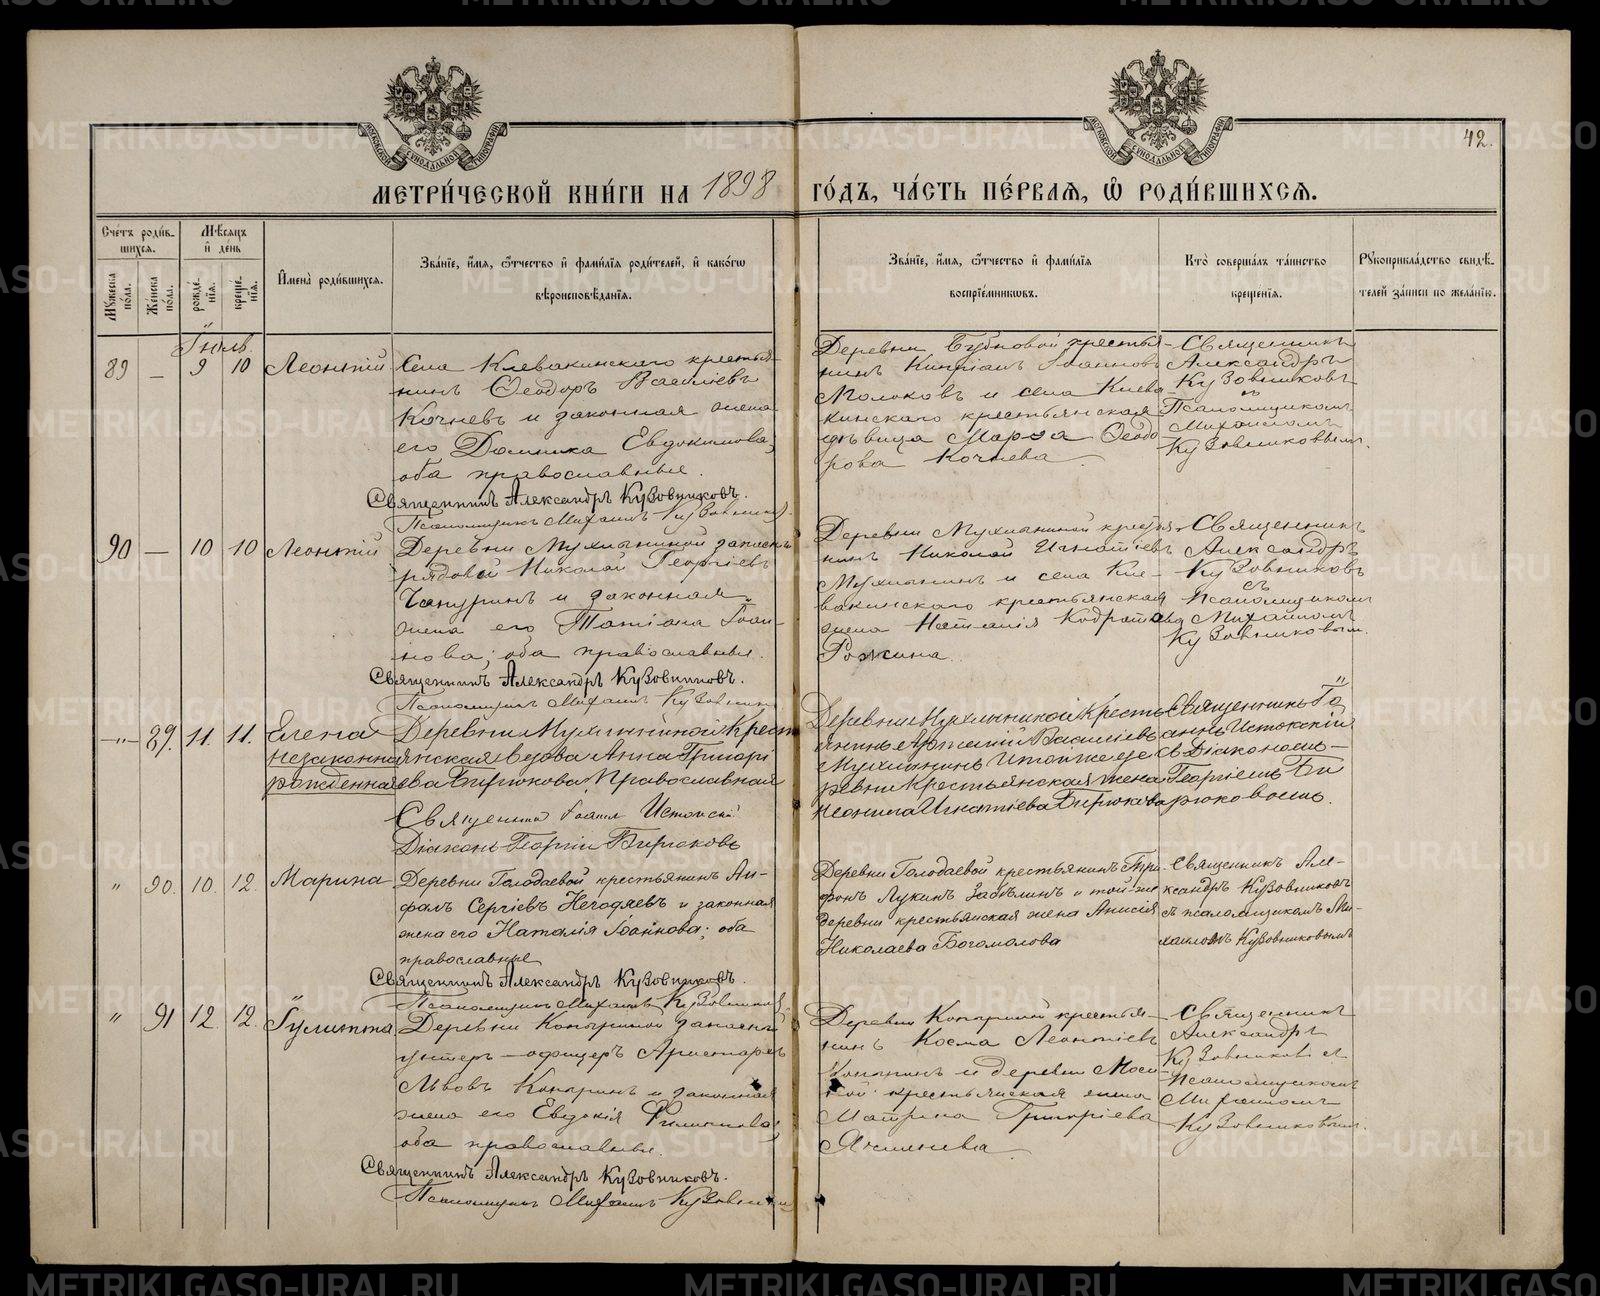 МЕТРИ́ЧЕСКОЙ КНИ́ГИ НА 1898 ГО́ДЪ, ЧА́СТЬ ПЕ́РВАѦ, Ѡ҆ РОДИ́ВШИХСѦ.
42.
МОСКОВСКОЙ СѴНОДАЛЬНОЙ ТИПОГРАФIИ
МОСКОВСКОЙ СѴНОДАЛЬНОЙ ТИПОГРАФIИ
Сче́тъ роди́в-
шихсѧ.
Мꙋжеска по́ла.
Же́нска по́ла.
Мѣ́сѧцъ
и҆ де́нь
рожде́-
нїѧ.
креще́-
нїѧ.
И҆мена̀ роди́вшихсѧ.
Зва́нїе, и҆́мѧ, ѻ҆́тчество и҆ фами́лїѧ роди́телей, и҆ како́гѡ
вѣроисповѣ́данїѧ.
Зва́нїе, и҆́мѧ, ѻ҆́тчество и҆ фами́лїѧ
воспрїе́мникѡвъ.
Кто̀ соверша́лъ та́инство
креще́нїѧ.
Рꙋкоприкла́дство свидѣ́-
телей за́писи по жела́нїю.
Іюль
89 — 9 10 Леонтій
Села Клевакинскаго крестья-
нинъ Ѳеодоръ Васильевъ
Кочневъ и законная жена
его Домника Евдокимова,
оба православные.
Священникъ Александръ Кузовниковъ.
Псаломщикъ Михаилъ Кузовников
Деревни Бубновой крестья-
нинъ Кипріанъ Іоанновъ
Молоковъ и села Клева-
кинскаго крестьянская
дѣвица Марѳа Ѳеодо-
рова Кочнева
Священникъ
Александръ
Кузовниковъ
съ
Псаломщикомъ
Михаиломъ
Кузовниковымъ.
90 — 10 10 Леонтій
Деревни Мухлыниной запасн.
рядовой Николай Георгіевъ
Чапуринъ и законная
жена его Татіана Іоан-
нова; оба православные.
Священникъ Александръ Кузовниковъ.
Псаломщикъ Михаилъ Кузовников
Деревни Мухлыниной крестья-
нинъ Николай Игнатіевъ
Мухлынинъ и села Кле-
вакинскаго крестьянская
жена Наталія Кодратова
Рожина.
Священникъ
Александръ
Кузовниковъ
съ
Псаломщикомъ
Михаиломъ
Кузовниковым.
—"— 89. 11. 11. Елена
незаконно
рожденная
Деревни Мухлыниной Крест
янская вдова Анна Григорі
ева Бирюкова, Православная
Священникъ Іоаннъ Истокскій
Діаконъ Георгій Бирюковъ
Деревни Мухлыниной Кресть
янинъ Артемій Василіевъ
Мухлынинъ и той же де
ревни Крестьянская жена
Неонила Игнатіева Бирюкова
Священникъ Іо
аннъ Истокскій
съ Діакономъ
Георгіемъ Би
рюковымъ.
" 90. 10. 12. Марина
Деревни Голодаевой крестьянинъ Ан-
фалъ Сергіевъ Негодяевъ и законная
жена его Наталія Іоаннова; оба
православные
Священникъ Александръ Кузовниковъ.
Псаломщикъ Михаилъ Кузовников
Деревни Голодаевой крестьянинъ Три-
фонъ Лукинъ Забѣлинъ и той-же
деревни крестьянская жена Анисія
Николаева Богомолова
Священникъ Але-
ксандръ Кузовниковъ
съ псаломщикомъ Ми-
хаиломъ Кузовниковымъ
" 91 12. 12. Іулитта
Деревни Копыриной запасный
унтеръ-офицеръ Аристархъ
Львовъ Копыринъ и законная
жена его Евдокія Филиппова;
оба православные.
Священникъ Александръ Кузовниковъ.
Псаломщикъ Михаилъ Кузовников
Деревни Копыриной крестья-
нинъ Косма Леонтіевъ
Копыринъ и деревни
крестьянская жена
Григоріева
Священникъ
Александръ
Кузовниковъ съ
Псаломщикомъ
Михаиломъ
Кузовниковым.
METRIKI.GASO-URAL.RU